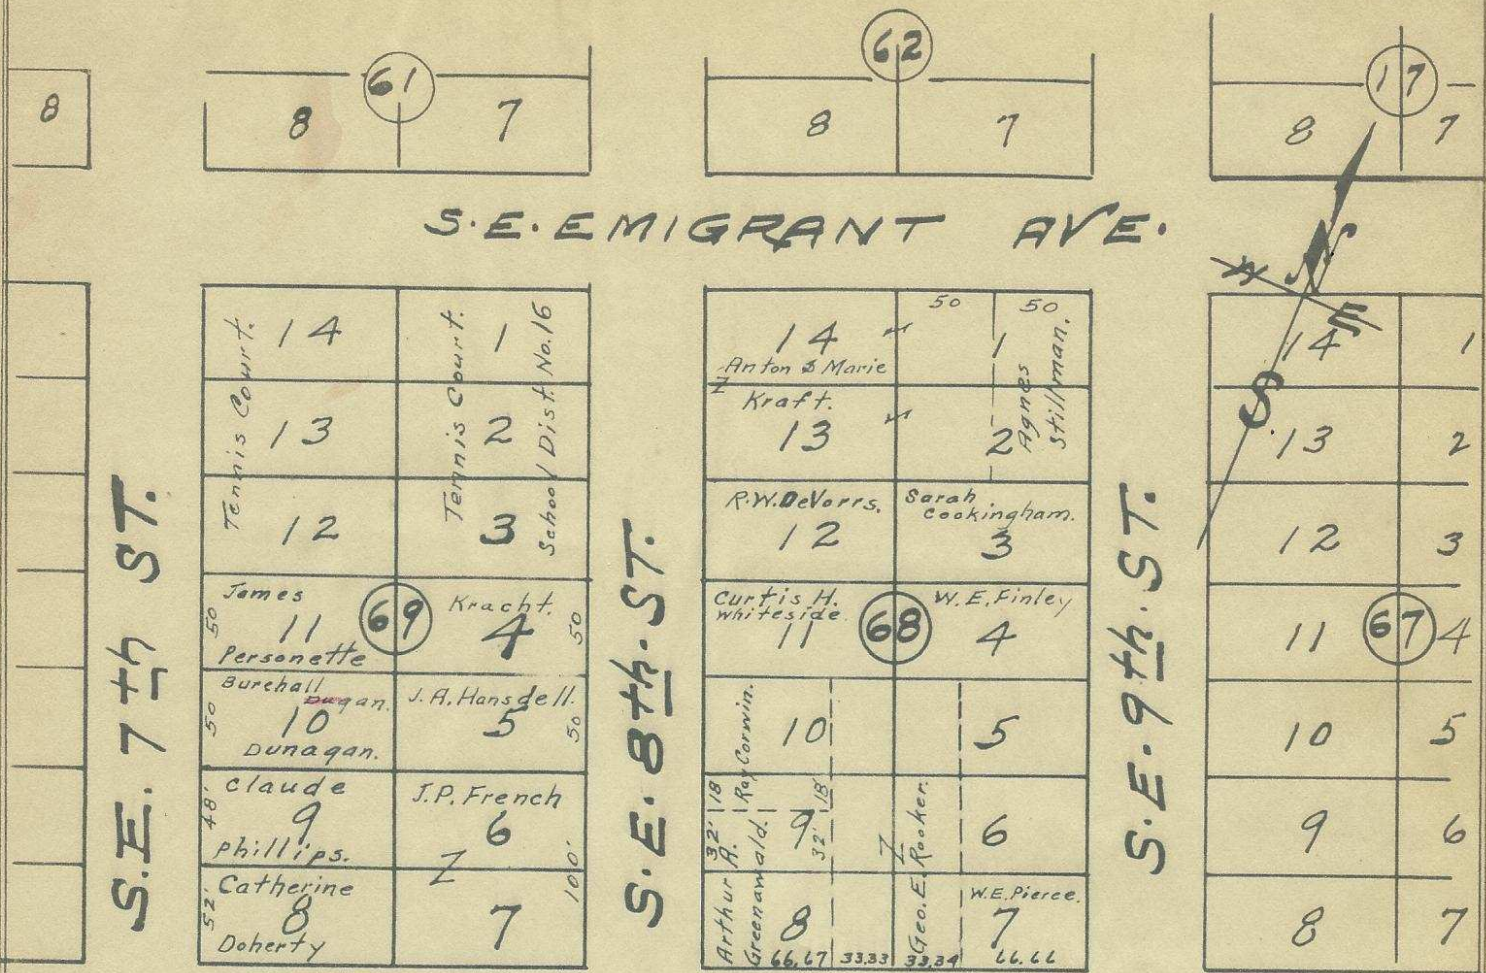 8
61
8 7
62
8 7
17
8 7
S.E. EMIGRANT AVE.
N
W
E
S
S.E. 7th ST.
14
13
12
Tennis Court.
1
2
3
Tennis Court.
School Dist. No. 16
69
James
11
Personette
50
Kracht.
4
50
Burchall
Dugan.
10
Dunagan.
50
J.A. Hansdell.
5
50
Claude
9
Phillips.
48'
J.P. French
6
Z
7
100'
Catherine
8
Doherty
52'
S.E. 8th. ST.
14
Anton & Marie
Z
Kraft.
13
50 50
1
2
Agnes
Stillman.
R.W. DeVorrs.
12
Sarah
Cookingham.
3
68
Curtis H.
Whiteside
11
W.E. Finley
4
10
Ray Corwin.
5
18
18'
9
32'
32'
Arthur A.
Greenawald.
8
Z
Geo. E. Rooker.
6
W.E. Pierce.
7
66.67 33.33 33.34 66.66
S.E. 9th. ST.
14 1
13 2
12 3
11 67 4
10 5
9 6
8 7